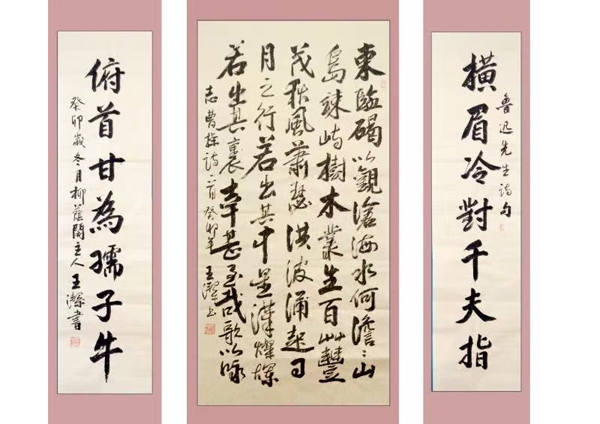 魯迅先生詩句
橫眉冷對千夫指
東臨碣以觀滄海水何澹〻山
島竦峙樹木叢生百艸豐
茂秋風蕭瑟洪波涌起日
月之行若出其中星漢燦爛
若出其裏幸甚至哉歌以咏
志曹操詩一首癸卯年王潔书
俯首甘為孺子牛
癸卯歲冬月柳蔭閣主人王潔書